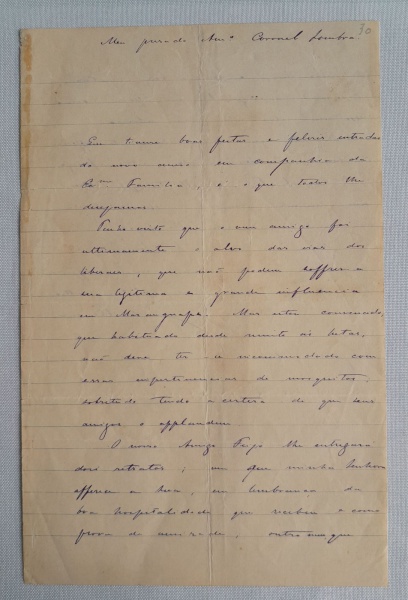 30
Meu presado Amº Coronel Sombra
Que tivesse boas festas e felizes entradas
do novo anno em companhia da
Exma Familia, é o que todos lhe
desejamos.
Tenho visto que o meu amigo foi
ultimamente o alvo das iras dos
, que não podem soffrer a
sua legitima e grande influencia
em Maranguape. Mas estou convencido,
que habituado desde muito ás lutas,
não deve ter se incommodado com
essas impertinencias de mosquitos,
sobretudo tendo a certeza de que seus
amigos o applaudem.
O nosso amigo Feijó lhe entregará
dois retratos, um que minha Senhora
offerece a sua, em lembrança da
boa hospitalidade que recebeu e como
prova de amizade, outro em que